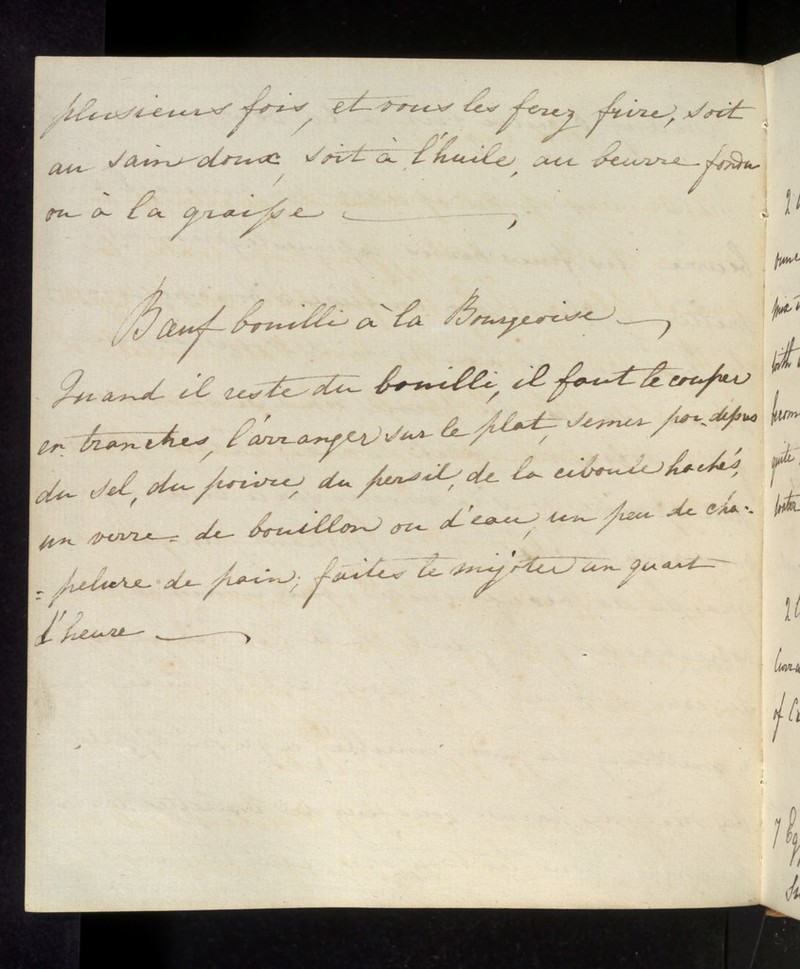 plusieurs fois, et vous les ferez frire, soit
au sain doux, soit à l'huile, au beurre fondu
ou à la graisse
Bœuf bouilli à la Bourgeoise
Quand il reste du bouilli, il faut le couper
en tranches, l'arranger sur le plat, semer par dessus
du sel, du poivre, du persil, de la ciboule hachés,
un verre = de bouillon ou d'eau, un peu de cha-
= pelure de pain; faites le mijoter un quart
d'heure
2
with
quite
2
of
7